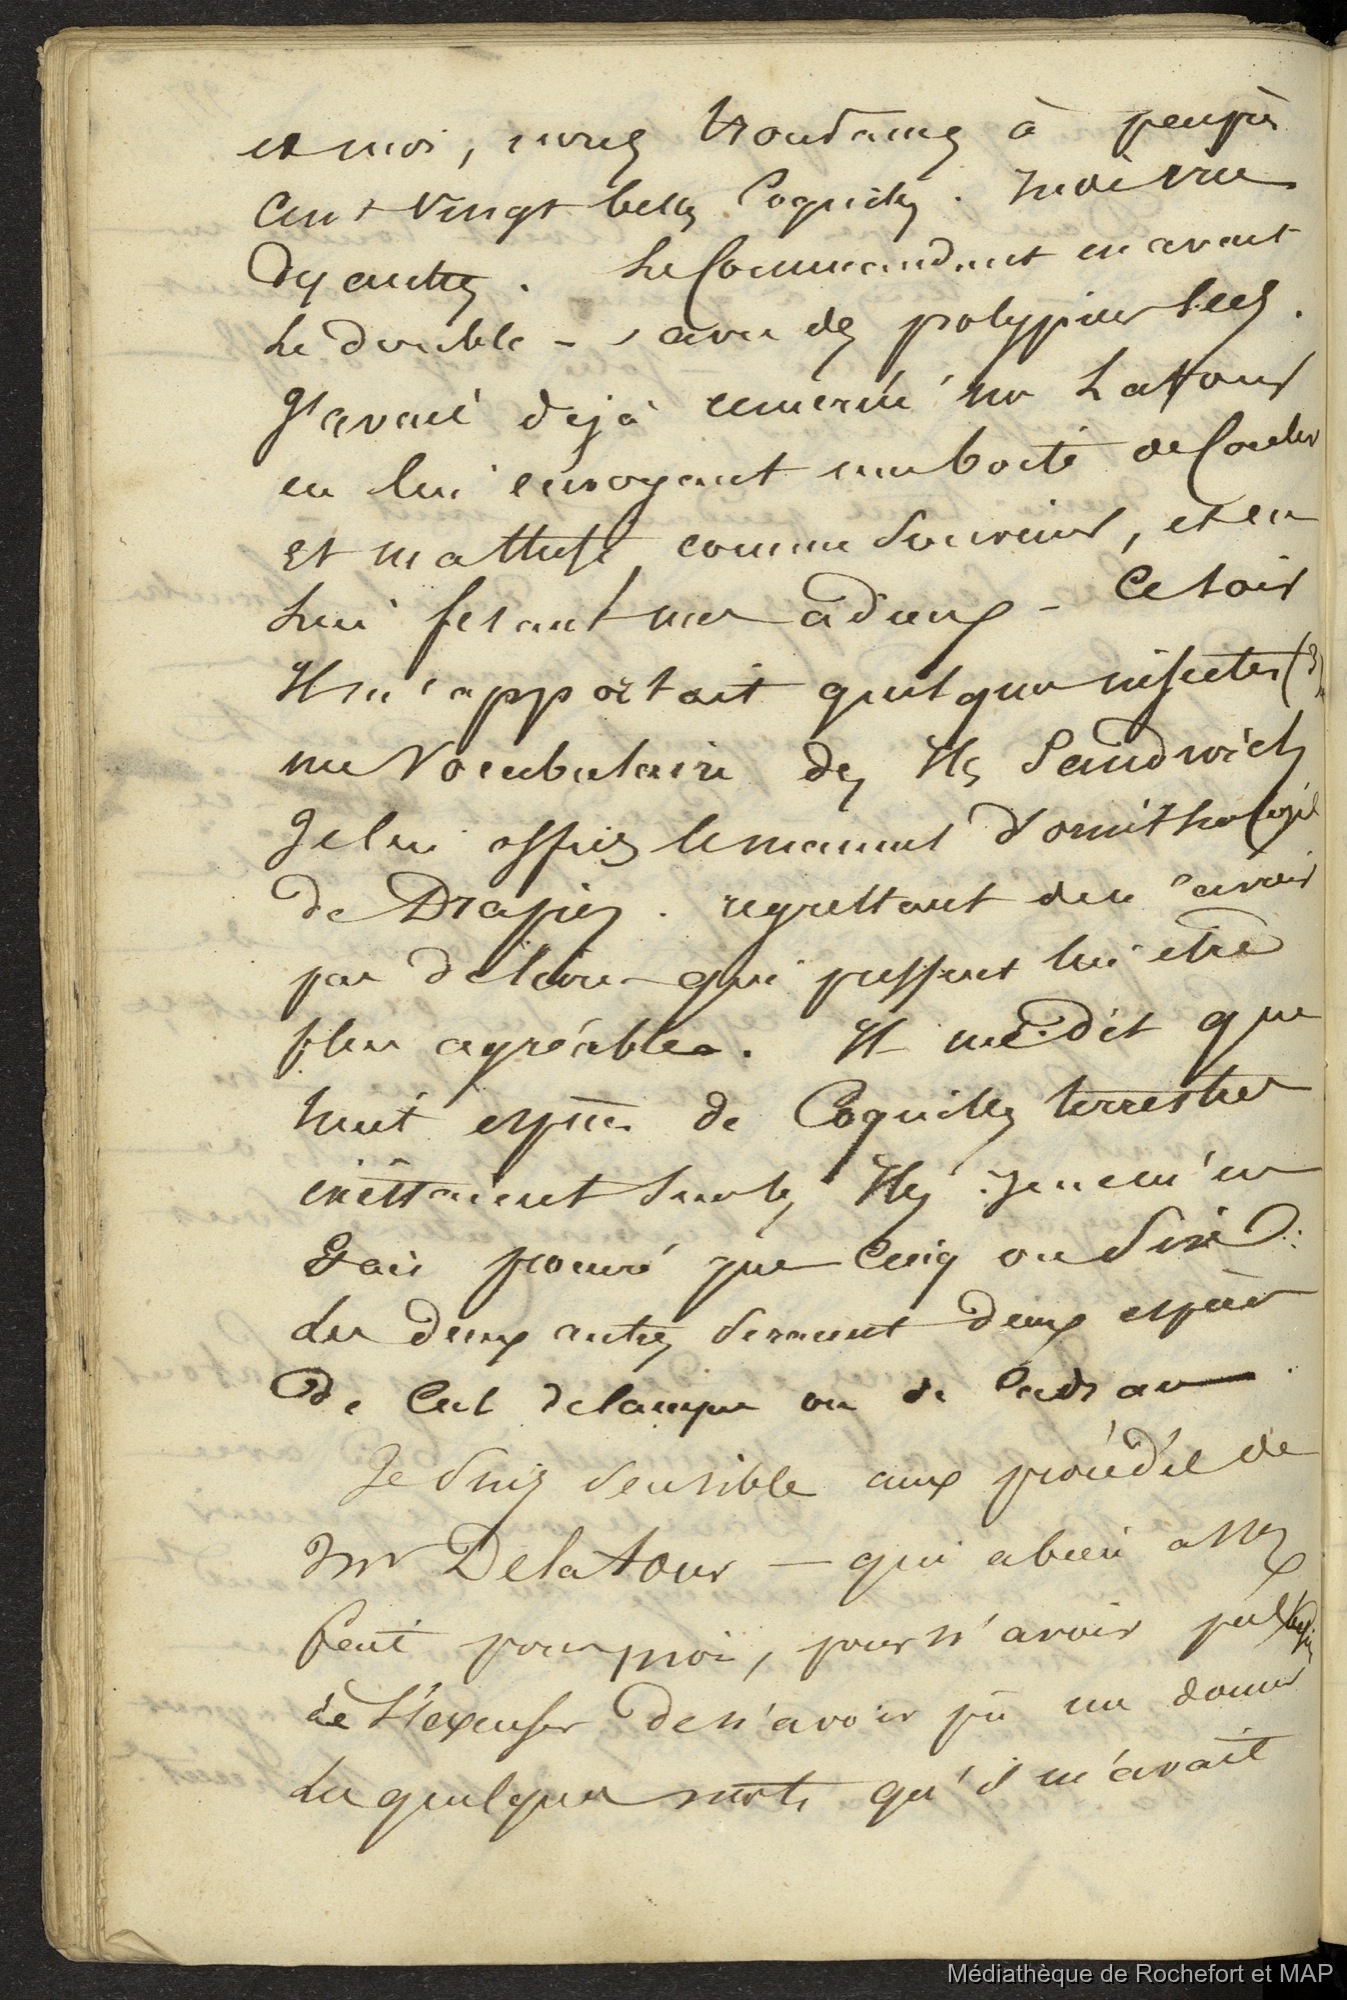 et moi, nous trouvames à peuprès
Cent vingt belles Coquilles.
des autres. Le Commandant en avait
Le double - avec des polypiers secs.
J'avais déjà remercié mr Latour
en lui envoyant une boite de Couleur
et comme Souvenir, et en
Lui fesant mes adieux - Ce soir
Il m'apportait quelques insectes (3)
un Vocabulaire des Iles Sandwich
Je lui offris le manuel d'ornithologie
de Drapiez. regrettant de n'avoir
pas de livres qui pussent lui etre
plus agréables. Il me dit que
huit espèces de Coquilles terrestres
existaient Sur les Iles. Je ne m'en
Etais procuré que Cinq ou Six :
Les deux autres Seraient deux espèces
de Cul de lampe ou de Cadran.
Je Suis Sensible aux procédés de
Mr Delatour - qui a bien assez
fait pour moi, pour n'avoir pas besoin
de S'excuser de n'avoir pû me donner
Les quelques qu'il m'avait
Médiathèque de Rochefort et MAP